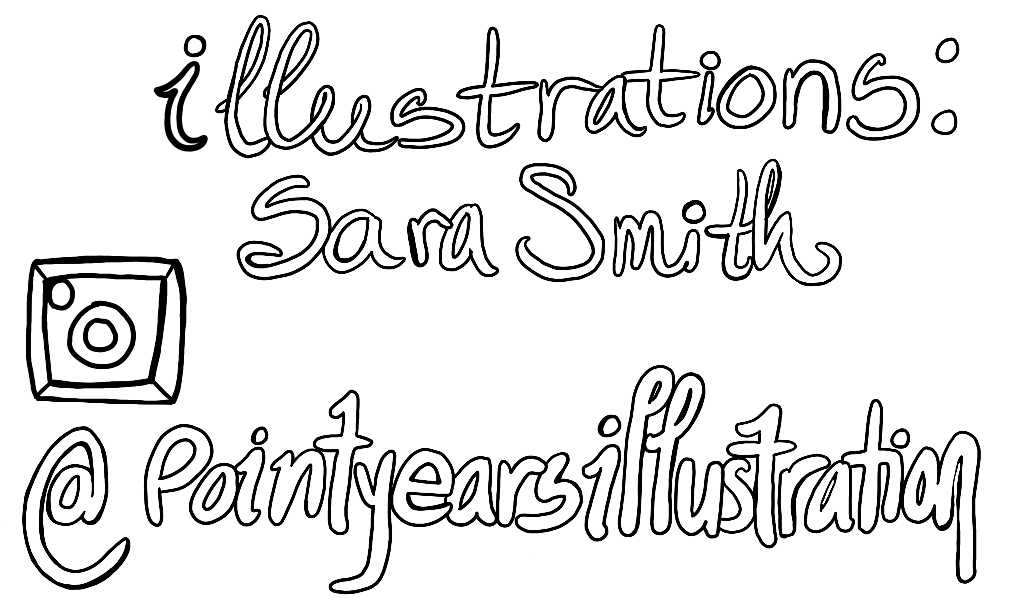 illustrations:
Sara Smith
@Pointyearsillustration